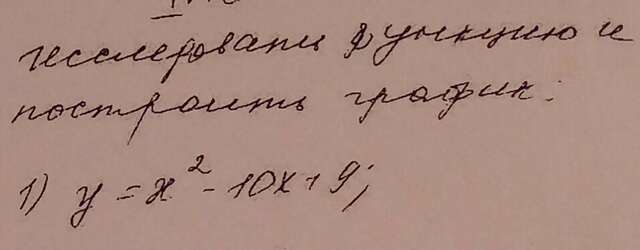 исследовать функцию и
построить график:
1) y = x² - 10x + 9;